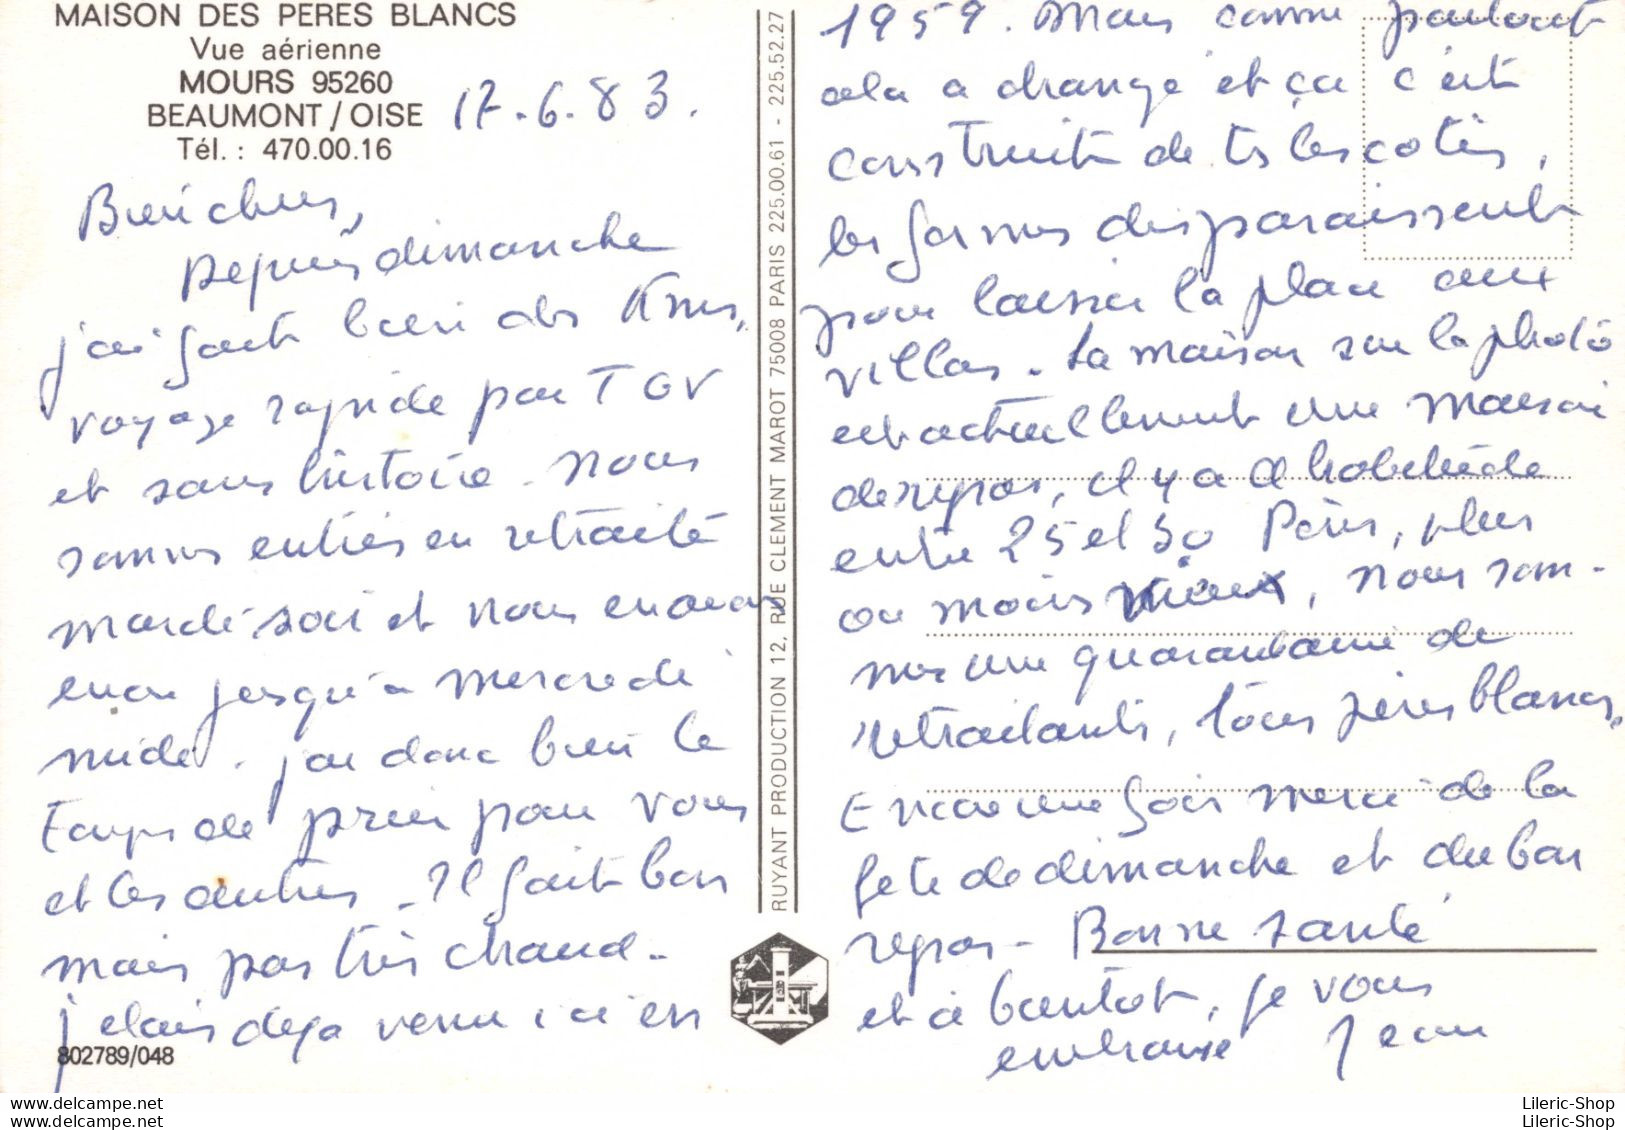 MAISON DES PERES BLANCS
Vue aérienne
MOURS 95260
BEAUMONT / OISE
Tél. : 470.00.16
17.6.83.
Bien chers,
Depuis dimanche
j'ai fait bien des Kms,
voyage rapide par TGV
et sans histoire. Nous
sommes entrés en retraite
mardi soir et nous en avons
encore jusqu'à mercredi
midi. j'ai donc bien le
temps de prier pour vous
et les autres. Il fait bon
mais pas très chaud.
j'étais déjà venu ici en
802789/048
RUYANT PRODUCTION 12, RUE CLEMENT MAROT 75008 PARIS 225.00.61 - 225.52.27
1959. Mais comme partout
cela a changé et ça c'est
construit de ts les cotés,
les fermes disparaissent
pour laisser la place aux
villas. La maison sur la photo
est actuellement une maison
de repos, il y a d'habitude
entre 25 et 30 Pères, plus
ou moins vieux, nous som-
mes une quarantaine de
retraitants, tous pères blancs,
Encore une fois merci de la
fete de dimanche et du bon
repos - Bonne santé
et à bientot, je vous
embrasse Jean
Lileric-Shop.delcampe.net
Lileric-Shop.delcampe.net
Lileric-Shop
Lileric-Shop